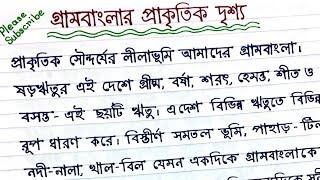 Please
Subscribe
গ্রামবাংলার প্রাকৃতিক দৃশ্য
প্রাকৃতিক সৌন্দর্যের লীলাভূমি আমাদের গ্রামবাংলা।
ষড়ঋতুর এই দেশে গ্রীষ্ম, বর্ষা, শরৎ, হেমন্ত, শীত ও
বসন্ত- এই ছয়টি ঋতু। এদেশ বিভিন্ন ঋতুতে বিভিন্ন
রূপ ধারণ করে। বিস্তীর্ণ সমতল ভূমি, পাহাড়-
নদী-নালা, খাল-বিল যেমন একদিকে গ্রামবাংলাকে